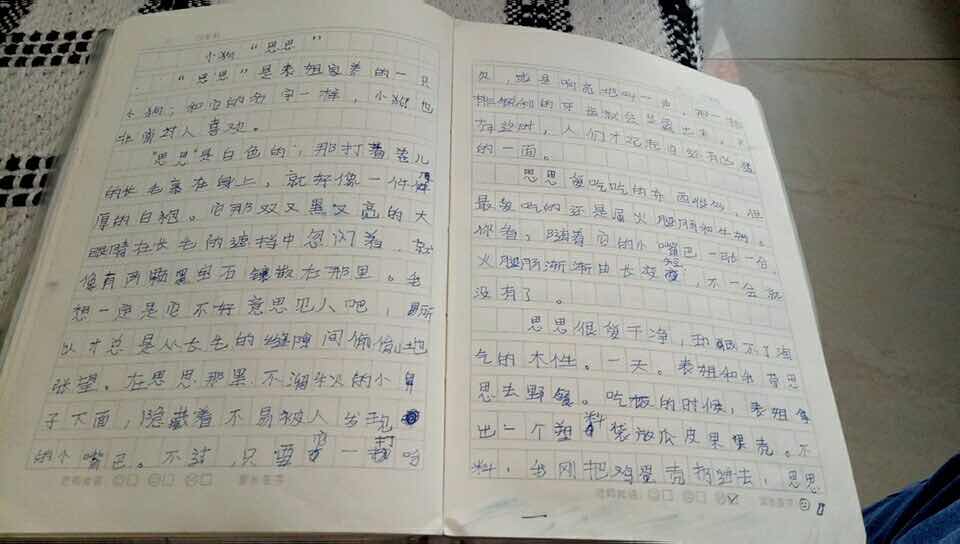 小狗“思思”
“思思”是表姐家养的一只
小狗；和它的名字一样，小狗也
非常讨人喜欢。
“思思”是白色的；那打着卷儿
的长毛裹在身上，就好像一件厚
厚的白袍。它那双又黑又亮的大
眼睛在长毛的遮挡中忽闪着，就
像有两颗黑宝石镶嵌在那里。我
想一定是它不好意思见人吧，所
以才总是从长毛的缝隙间偷偷地
张望。在思思那黑不溜秋的小鼻
子下面，隐藏着不易被人发现
的小嘴巴。不过，只要
的一面。
思思
最爱吃的还是属火腿肠和牛奶。
你看，随着它的小嘴巴一动一合，
火腿肠渐渐由长变短，不一会就
没有了。
思思很爱干净，却改不了淘
气的本性。一天。表姐和我带思
思去野餐。吃饭的时候，表姐拿
出一个塑料袋放瓜皮果壳。不
料，我刚把鸡蛋壳扔进去，思思
老师的话
家长签字